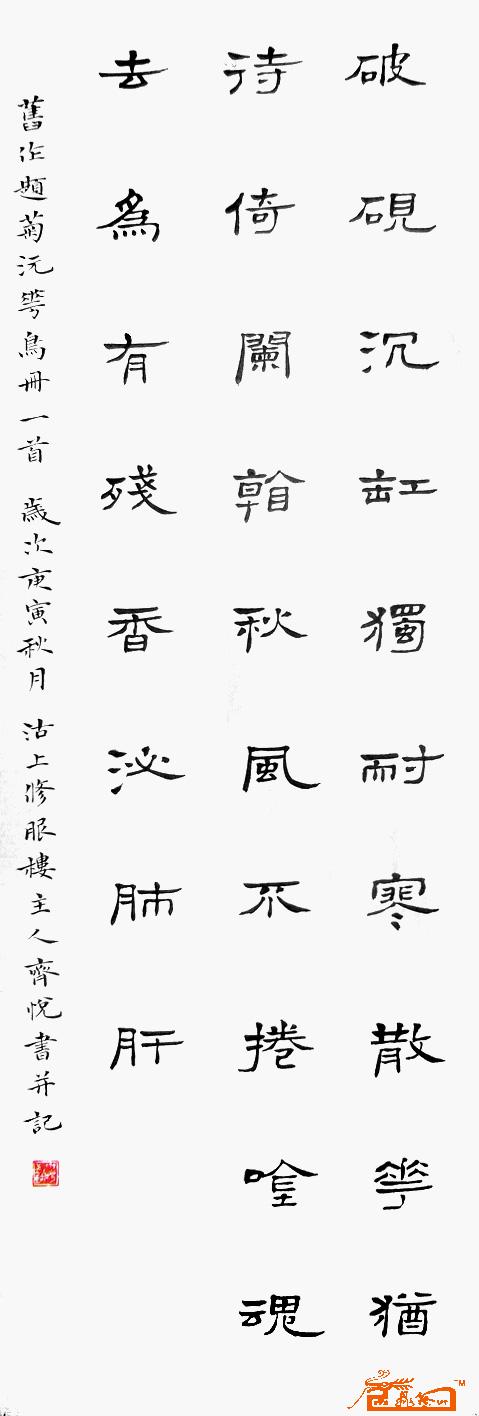 破硯沉缸獨耐寒散華猶
待倚闌幹秋風不捲唫魂
去為有殘香泌肺肝
舊作題菊沅華鳥冊一首 歲次庚寅秋月 沽上修眼樓主人齊悅書并記